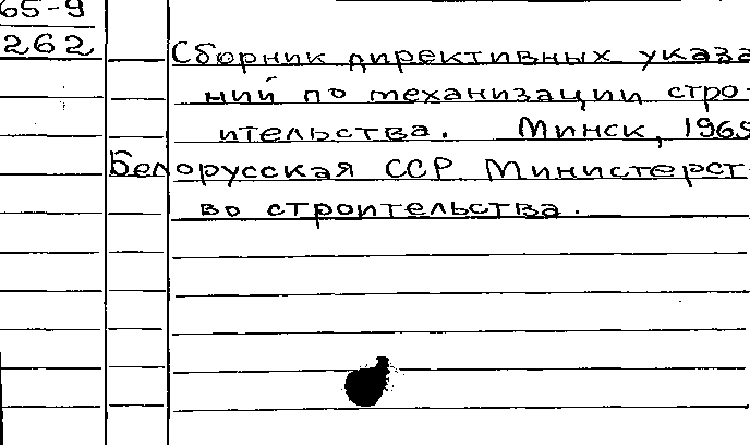 65-9
262
Сборник директивных указа
ний по механизации стро-
ительства. Минск, 1965
Белорусская ССР. Министерст-
во строительства.